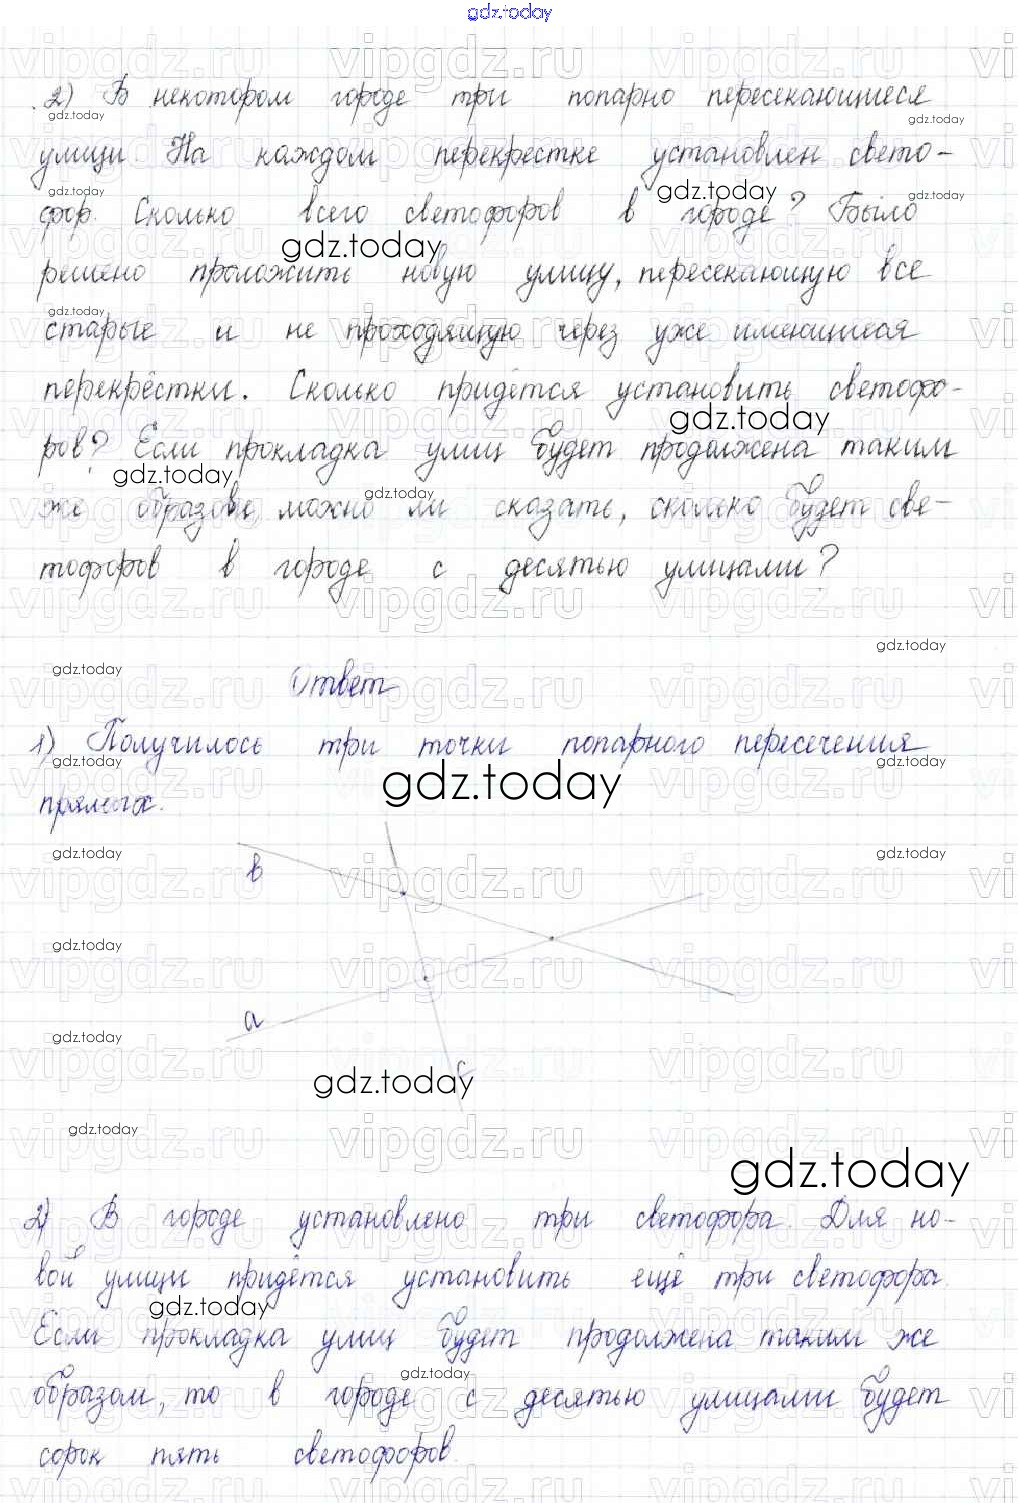 gdz.today
2) В некотором городе три попарно пересекающиеся
улицы. На каждом перекрестке установлен свето-
фор. Сколько всего светофоров в городе? Было
решено проложить новую улицу, пересекающую все
старые и не проходящую через уже имеющиеся
перекрёстки. Сколько придётся установить светофо-
ров? Если прокладка улиц будет продолжена таким
же образове, можно ли сказать, сколько будет све-
тофоров в городе с десятью улицами?
Ответ
1) Получилось три точки попарного пересечения
прямых.
в
а
с
2) В городе установлено три светофора. Для но-
вой улицы придётся установить ещё три светофора.
Если прокладка улиц будет продолжена таким же
образом, то в городе с десятью улицами будет
сорок пять светофоров.